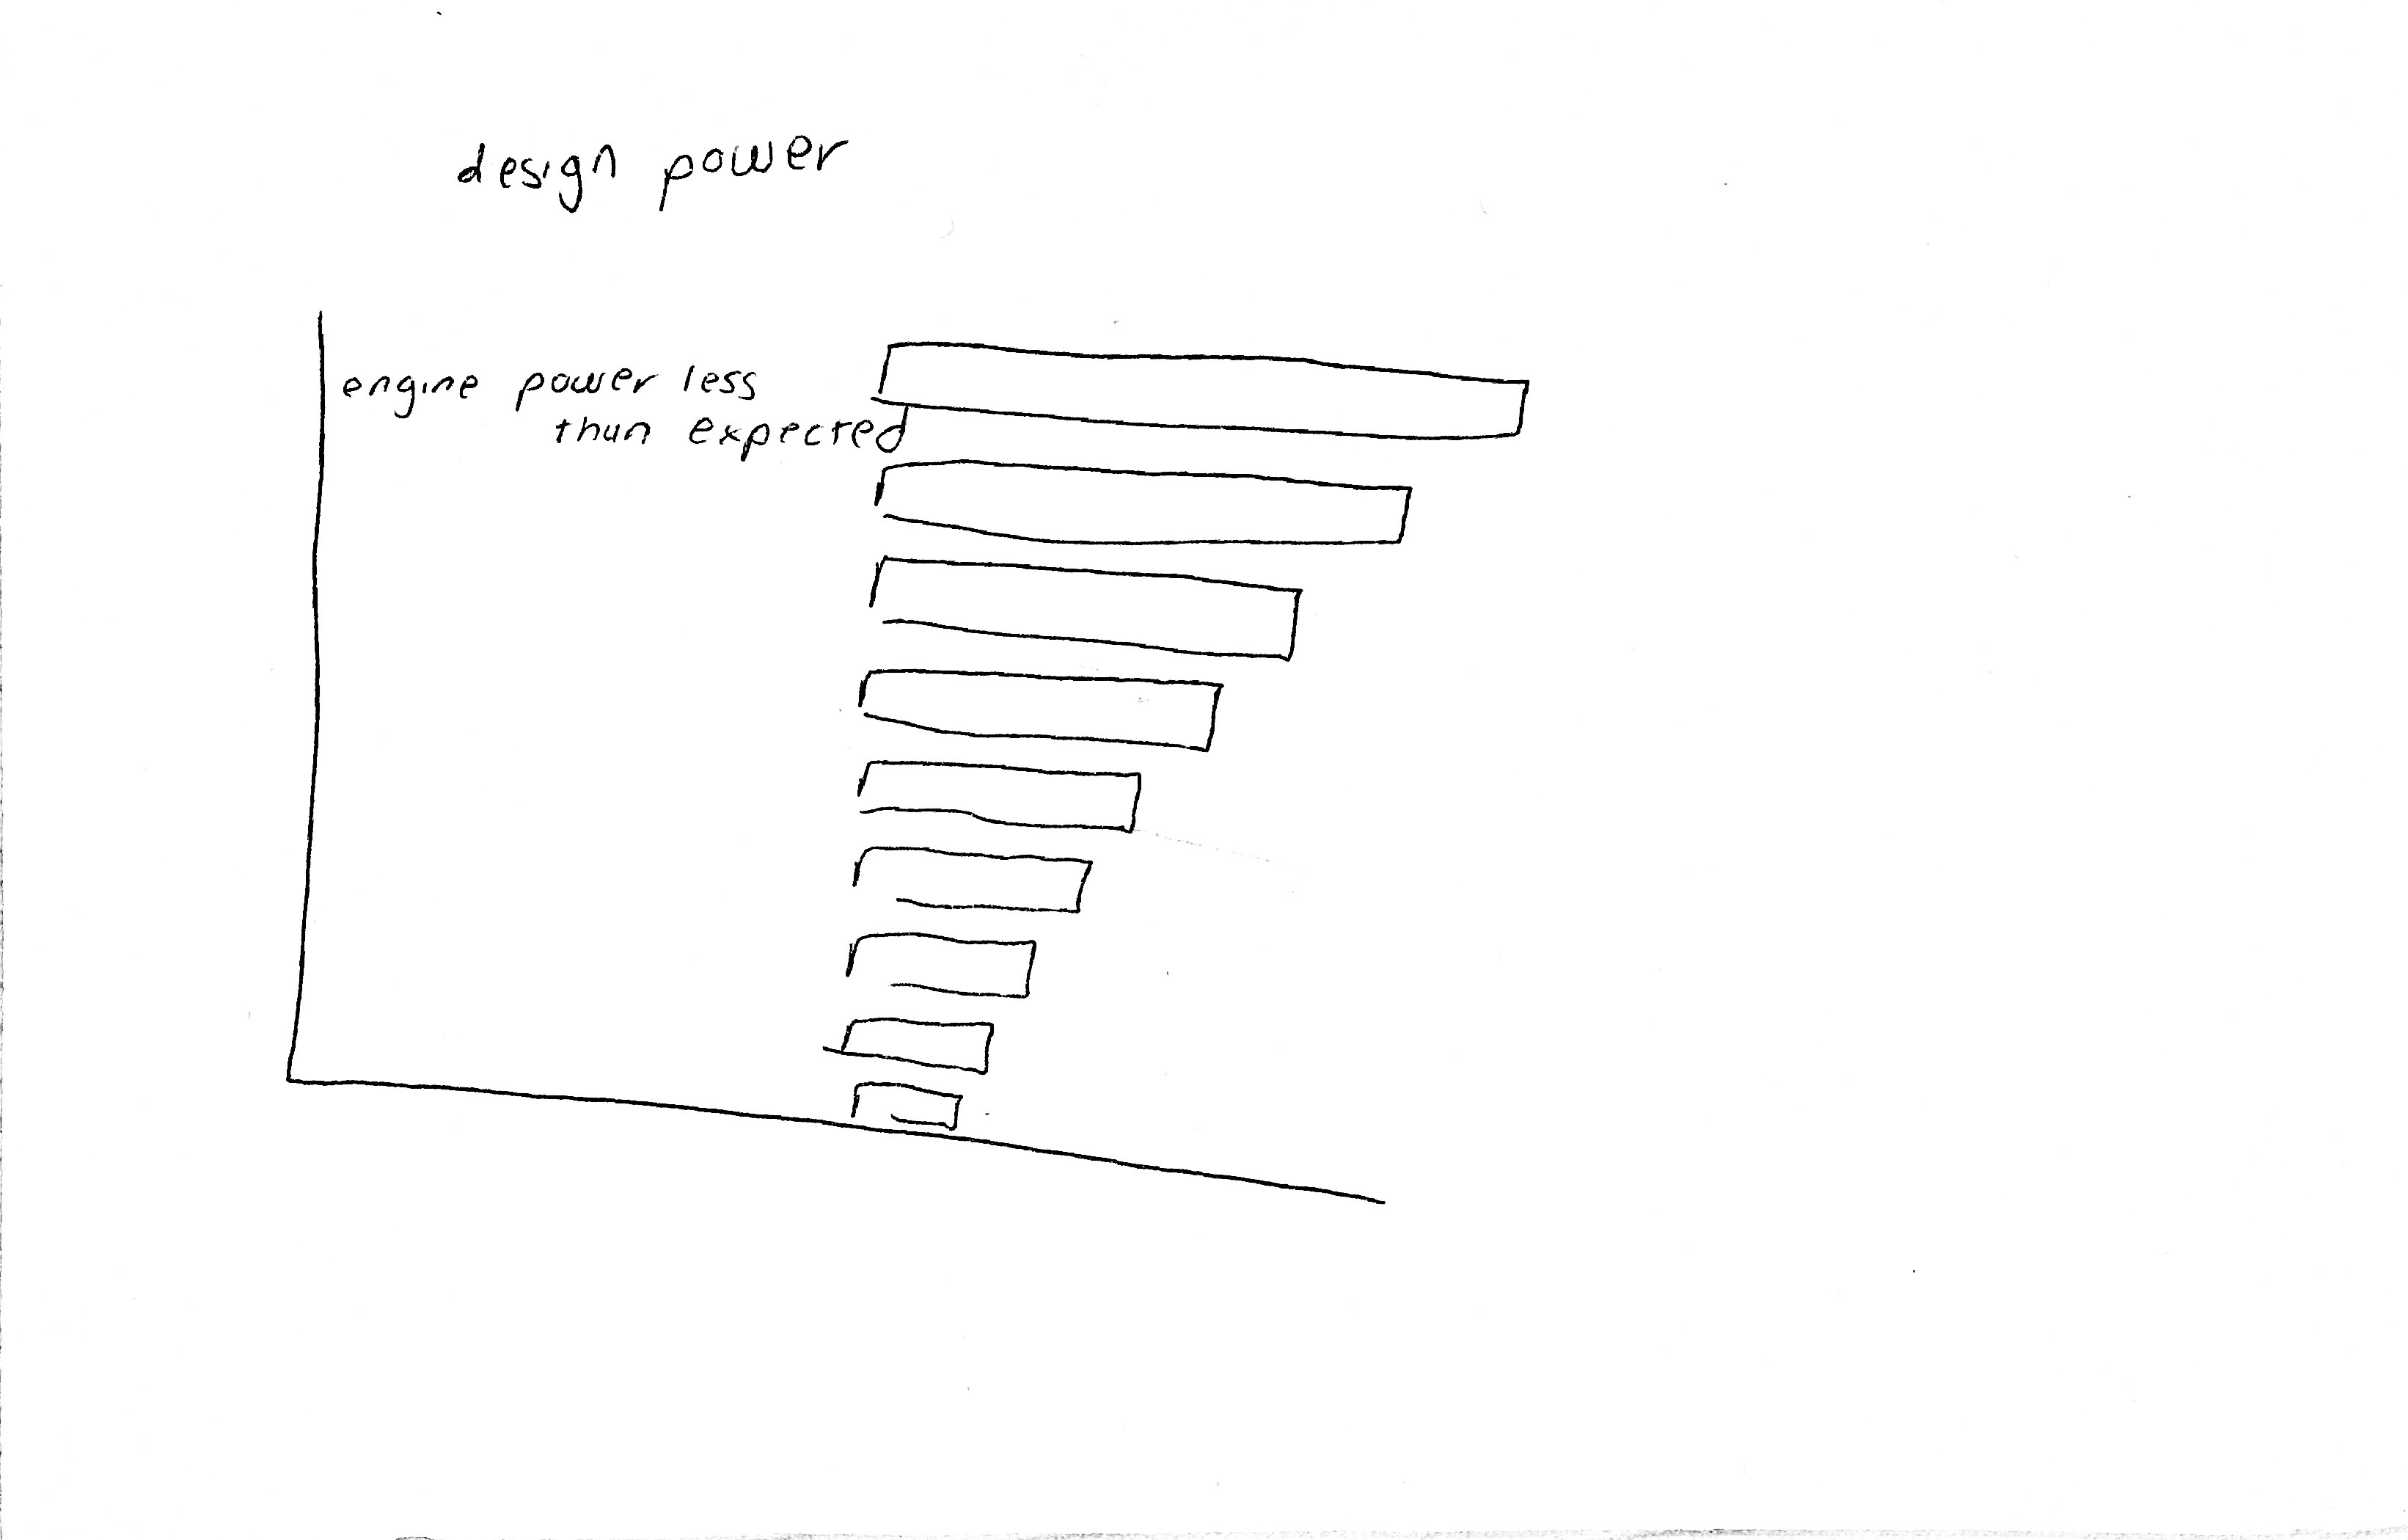 design power
engine power less
than expected